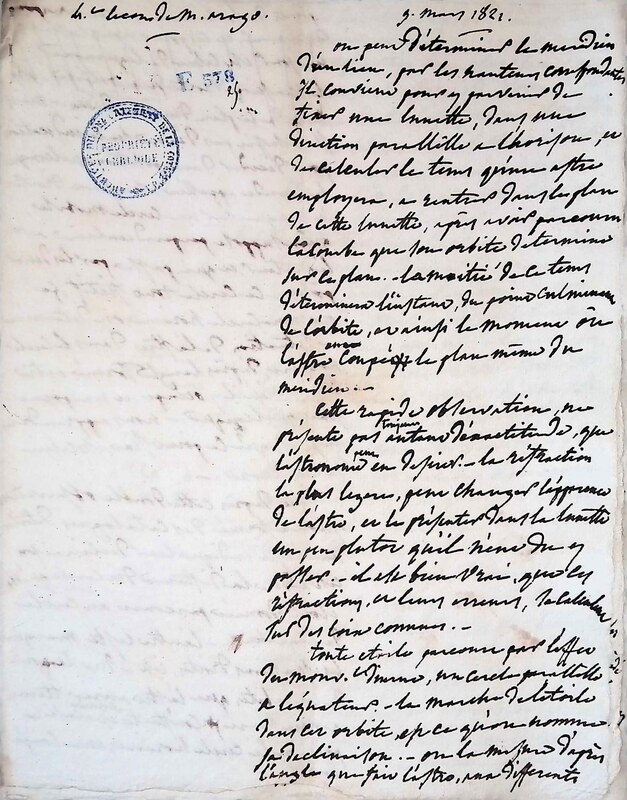 4.e leçon de M. arago.
9. mars 1821.
E 578
ARCHIVES DU DÉP.
PROPRIÉTÉ PUBLIQUE
on peut déterminer le meridien
d'un lieu, par les hauteurs correspondantes
Il convient pour y parvenir de
fixer une lunette, dans une
direction parallele a l'horison, et
de calculer le tems qu'une astre
employera, a rentrer dans le plan
de cette lunette, après avoir parcouru
la courbe que son orbite determine
sur ce plan. - la moitié de ce tems
déterminera l'instant, du point culminant
de l'orbite, et ainsi le moment où
l'astre aura coupé le plan même du
meridien. -
Cette rapide observation, ne
présente pas toujours autant d'exactitude, que
l'astronomie peut en desirer. - la refraction
la plus legere, peut changer l'apparence
de l'astre, et le présenter dans la lunette
un peu plutot qu'il n'eut du y
passer. - il est bien vrai, que les
réfractions, et leurs erreurs, se calculent
sur des loix connues. -
toute etoile parcourt par l'effet
du mouv.t diurne, un cercle parallele
a l'équateur. - la marche de l'étoile
dans cet orbite, est ce qu'on nomme
sa declinaison. - on la mesure d'après
l'angle que fait l'astre, aux differents